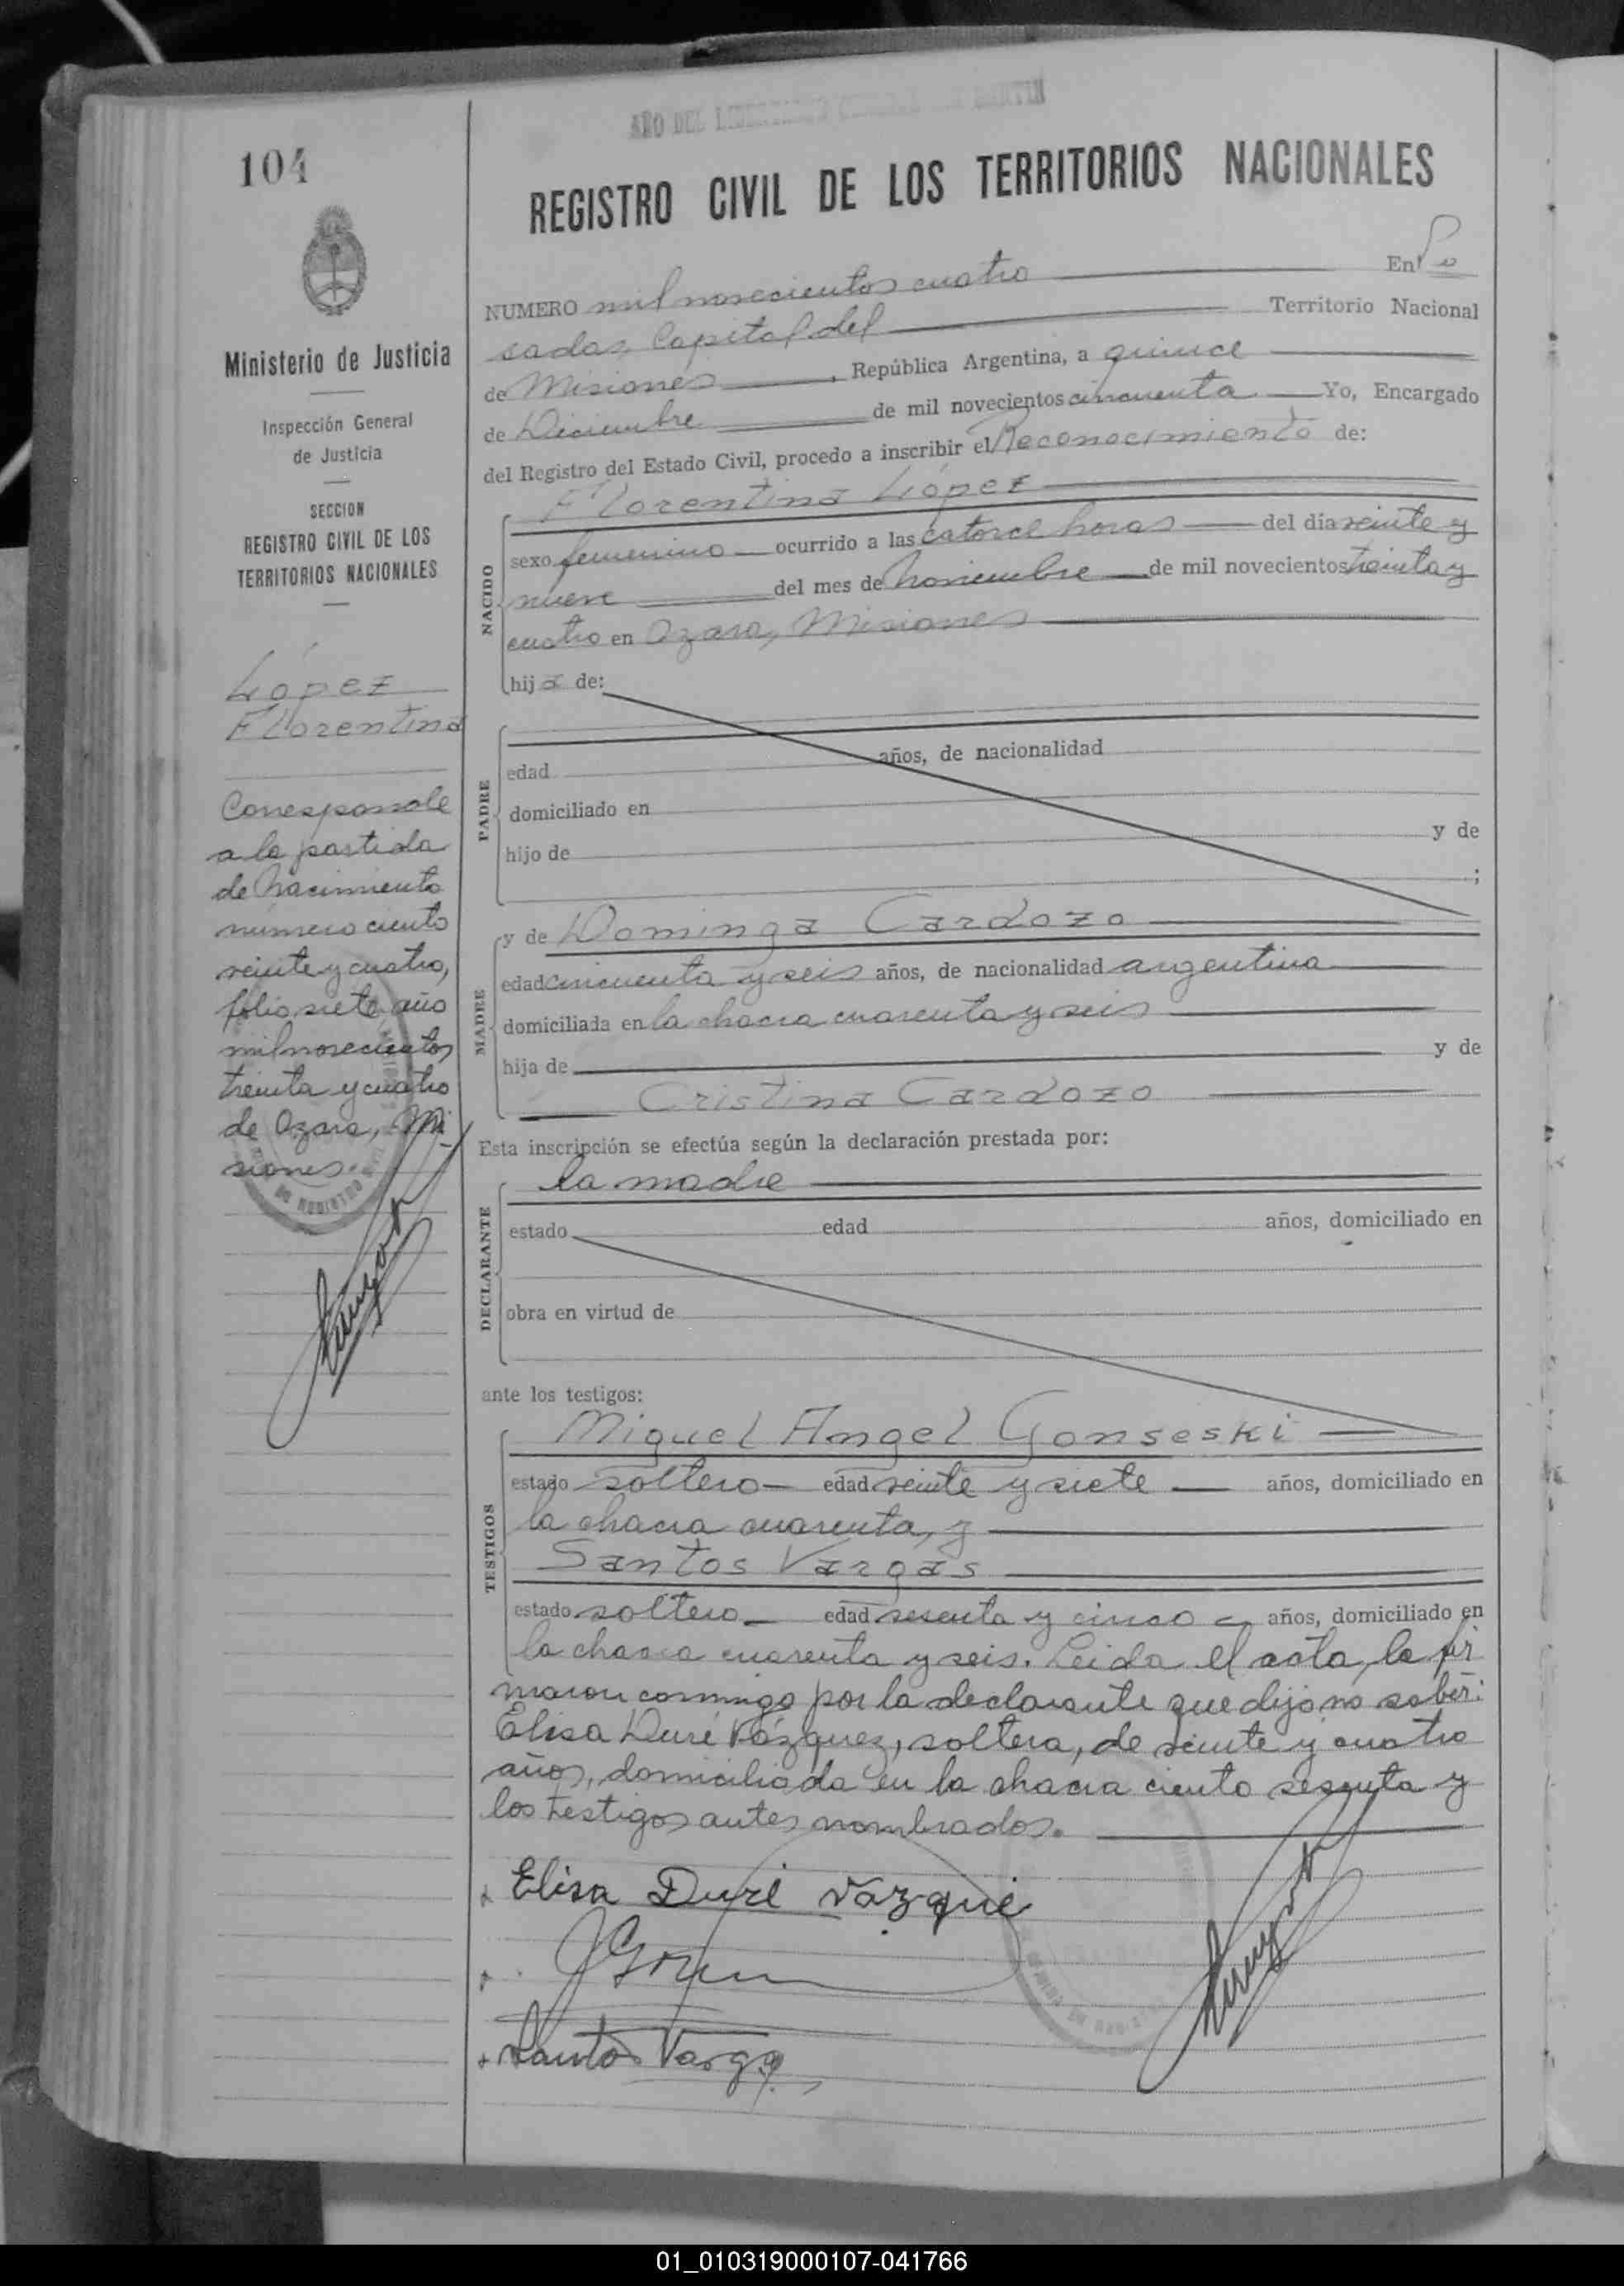 AÑO DEL LIBERTADOR GENERAL SAN MARTIN
104
REGISTRO CIVIL DE LOS TERRITORIOS NACIONALES
Ministerio de Justicia
Inspección General
de Justicia
SECCION
REGISTRO CIVIL DE LOS
TERRITORIOS NACIONALES
López
Florentina
Corresponde
a la partida
de Nacimiento
número ciento
veinte y cuatro,
folio siete año
mil novecientos
treinta y cuatro
de Azara, Mi
siones.
NUMERO mil novecientos cuatro En Po
sadas, Capital del Territorio Nacional
de Misiones, República Argentina, a quince
de Diciembre de mil novecientos cincuenta Yo, Encargado
del Registro del Estado Civil, procedo a inscribir el Reconocimiento de:
Florentina López
NACIDO
sexo femenino ocurrido a las catorce horas del día veinte y
nueve del mes de Noviembre de mil novecientos treinta y
cuatro en Azara, Misiones
hija de:
PADRE
edad años, de nacionalidad
domiciliado en
hijo de y de
;
MADRE
y de Dominga Cardozo
edad cincuenta y seis años, de nacionalidad argentina
domiciliada en la chacra cuarenta y seis
hija de y de
Cristina Cardozo
Esta inscripción se efectúa según la declaración prestada por:
la madre
DECLARANTE
estado edad años, domiciliado en
obra en virtud de
ante los testigos:
Miguel Angel Gonseski
TESTIGOS
estado soltero edad veinte y siete años, domiciliado en
la chacra cuarenta, y
Santos Vargas
estado soltero edad sesenta y cinco años, domiciliado en
la chacra cuarenta y seis. Leida el acta, la fir
maron conmigo por la declarante que dijo no saber:
Elisa Duré Vázquez, soltera, de veinte y cuatro
años, domiciliada en la chacra ciento sesenta y
los testigos antes nombrados.
Elisa Duré Vazque
Santos Vargas
01_010319000107-041766